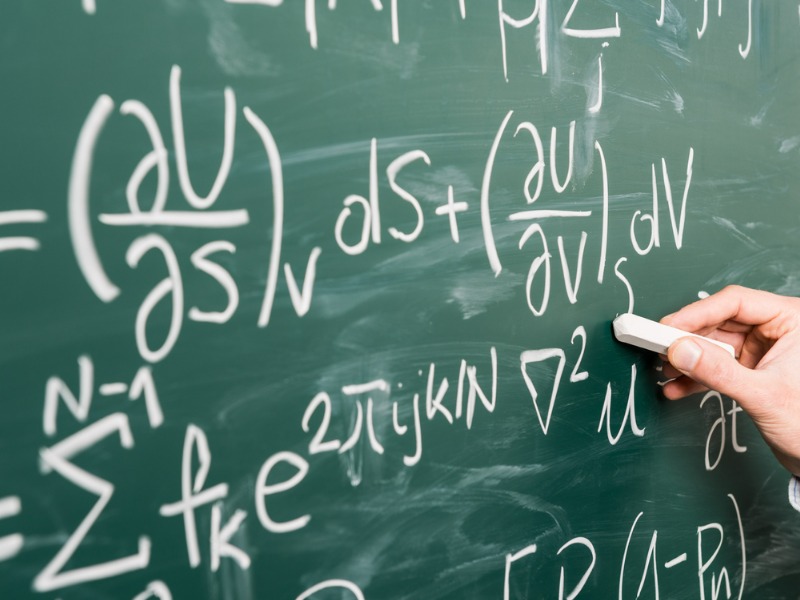 = (∂U/∂S)_V dS + (∂U/∂V)_S dV
= Σ^{N-1} f_K e^{2πijk/N} ∇²u ∂t
(1-Pn)